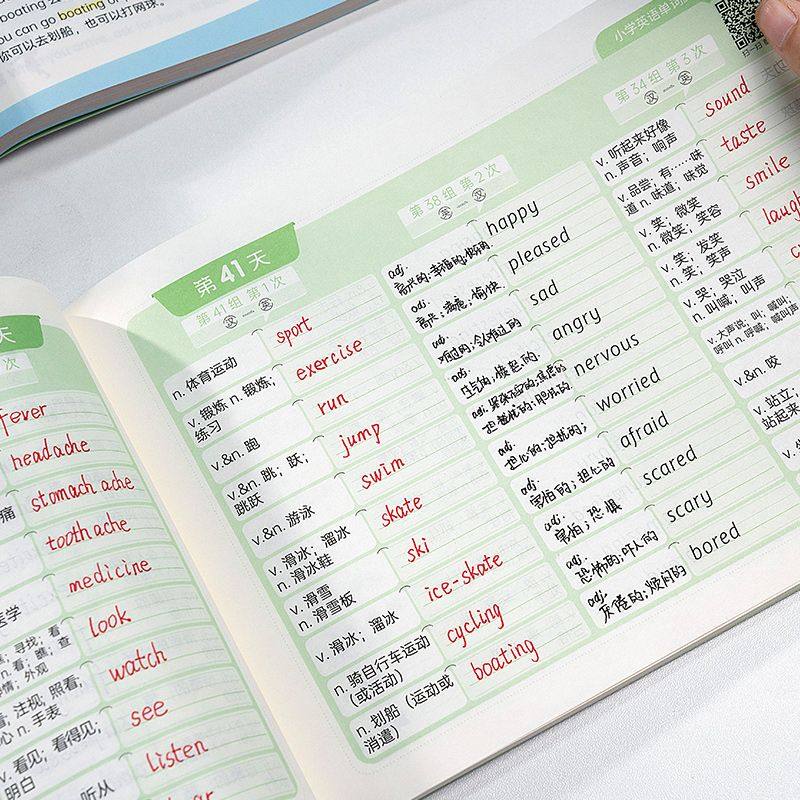 boating
you can go boating or打网球.
你可以去划船，也可以打网球。
fever
headache
痛
stomach ache
toothache
medicine
医学
look
寻找；看
n. 看；瞧；查
外观
watch
注视；照看；
n. 手表
see
v. 看见；看得见；
明白
listen
听从
第 41 天
第 41 组 第 1 次
汉 英
n. 体育运动
sport
v. 锻炼 n. 锻炼；
练习
exercise
v.&n. 跑
run
v.&n. 跳；跃；
跳跃
jump
v.&n. 游泳
swim
v. 滑冰；溜冰
n. 滑冰鞋
skate
v. 滑雪
n. 滑雪板
ski
v. 滑冰；溜冰
ice-skate
n. 骑自行车运动
（或活动）
cycling
n. 划船（运动或
消遣）
boating
第 38 组 第 2 次
英 汉
adj.
高兴的；幸福的；
happy
adj.
高兴；满意；愉快
pleased
adj.
难过的；令人难过的
sad
adj.
生气的；愤怒的
angry
adj.
担忧的；胆怯的
nervous
adj.
担心的；担忧的；
worried
adj.
害怕的；担心的
afraid
adj.
害怕；恐惧
scared
adj.
恐怖的；吓人的
scary
adj.
厌倦的；烦闷的
bored
小学英语单词
扫一扫
第 34 组 第 3 次
汉 英
v. 听起来好像
n. 声音；响声
sound
v. 品尝；有……味
道 n. 味道；味觉
taste
v. 笑；微笑
n. 微笑；笑容
smile
v. 笑；发笑
n. 笑；笑声
v. 哭；哭泣
n. 叫喊；叫声
v. 大声说；叫；喊叫；
呼叫 n. 呼喊；喊叫声
v.&n. 咬
v. 站立；
站起来